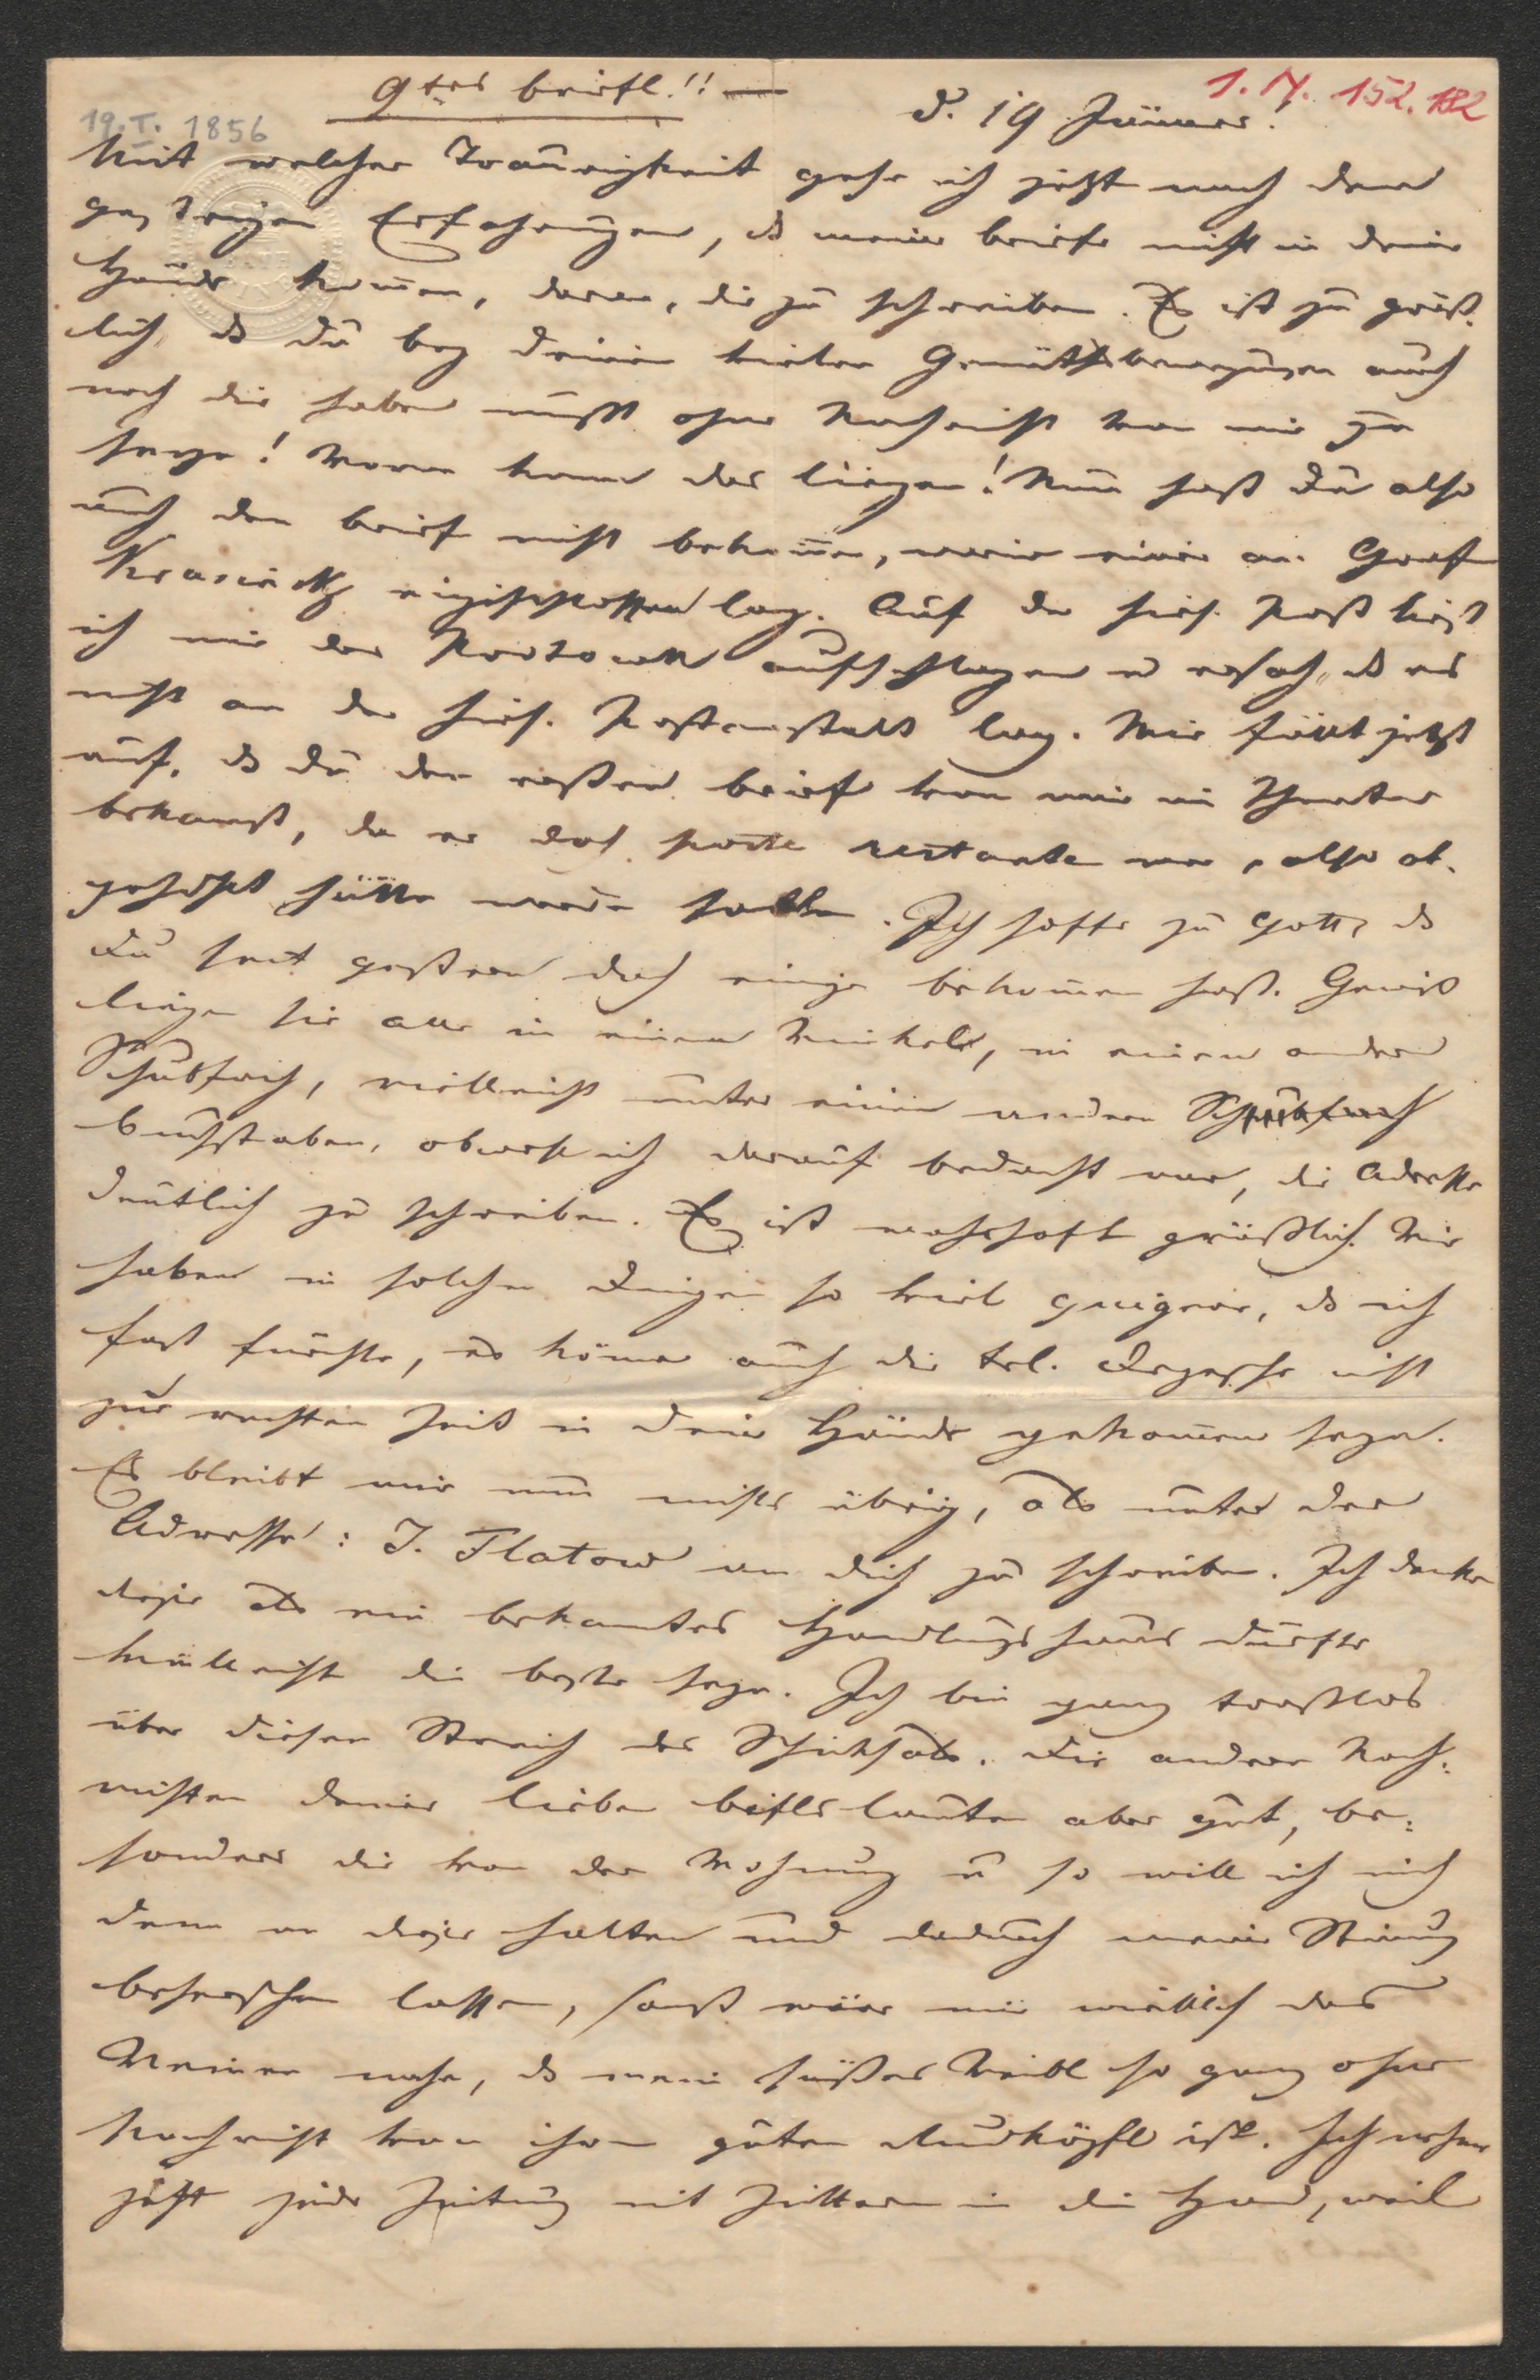 9tes briefl.!! —
d. 19 Jänner!
1. N. 152.182
19. I. 1856
Mit welcher Traurigkeit gehe ich jetzt nach den
gestrigen Erfahrungen, dß meine briefe nicht in deine
Hände kom̄en, daran, dir zu schreiben. Es ist zu gräß-
lich, dß du bey deinen vielen Gemüthsbewegungen auch
noch die haben mußt ohne Nachricht von mir zu
seyn! Woran kann das liegen! Nun hast du also
auch den brief nicht bekom̄en, worin einer an Graf
Krasicky eingeschlossen lag. Auf der hies. Post ließ
ich mir das Protocoll aufschlagen u ersah, dß es
nicht an der hies. Postanstalt lag. Mir fällt jetzt
auf, dß du den ersten brief von mir im Theater
bekamst, da er doch poste restante war, also ab-
geholt hätte werden sollen. Ich hoffe zu Gott, dß
du seit gestern doch einige bekom̄en hast. Gewiß
liegen sie alle in einem Winkel, in einem andern
Schubfach, vielleicht unter einem andern
buchstaben, obwohl ich darauf bedacht war, die Adresse
deutlich zu schreiben. Es ist wahrhaft gräßlich. Wir
haben in solchen Dingen so viel guignon, dß ich
fast fürchte, es könne auch die tel. Depesche nicht
zur rechten Zeit in deine Hände gekom̄en seyn.
Es bleibt mir nun nichts übrig, als unter der
Adresse: J. Flatow an dich zu schreiben. Ich denke
diese als ein bekanntes Handlungshaus dürfte
vielleicht die beste seyn. Ich bin ganz trostlos
über diesen Streich des Schicksals. Die andern Nach:
richten deines lieben briefls lauten aber gut, be:
sonders die von der Wohnung u so will ich mich
denn an diese halten und dadurch meine Stim̄ung
beherrschen lassen, sonst wäre mir wirklich das
Weinen nahe, dß mein süßes Weibl so ganz ohne
Nachricht von ihrem guten Mudköpfl ist. Ich nehme
jetzt jede Zeitung mit Zittern in die Hand, weil